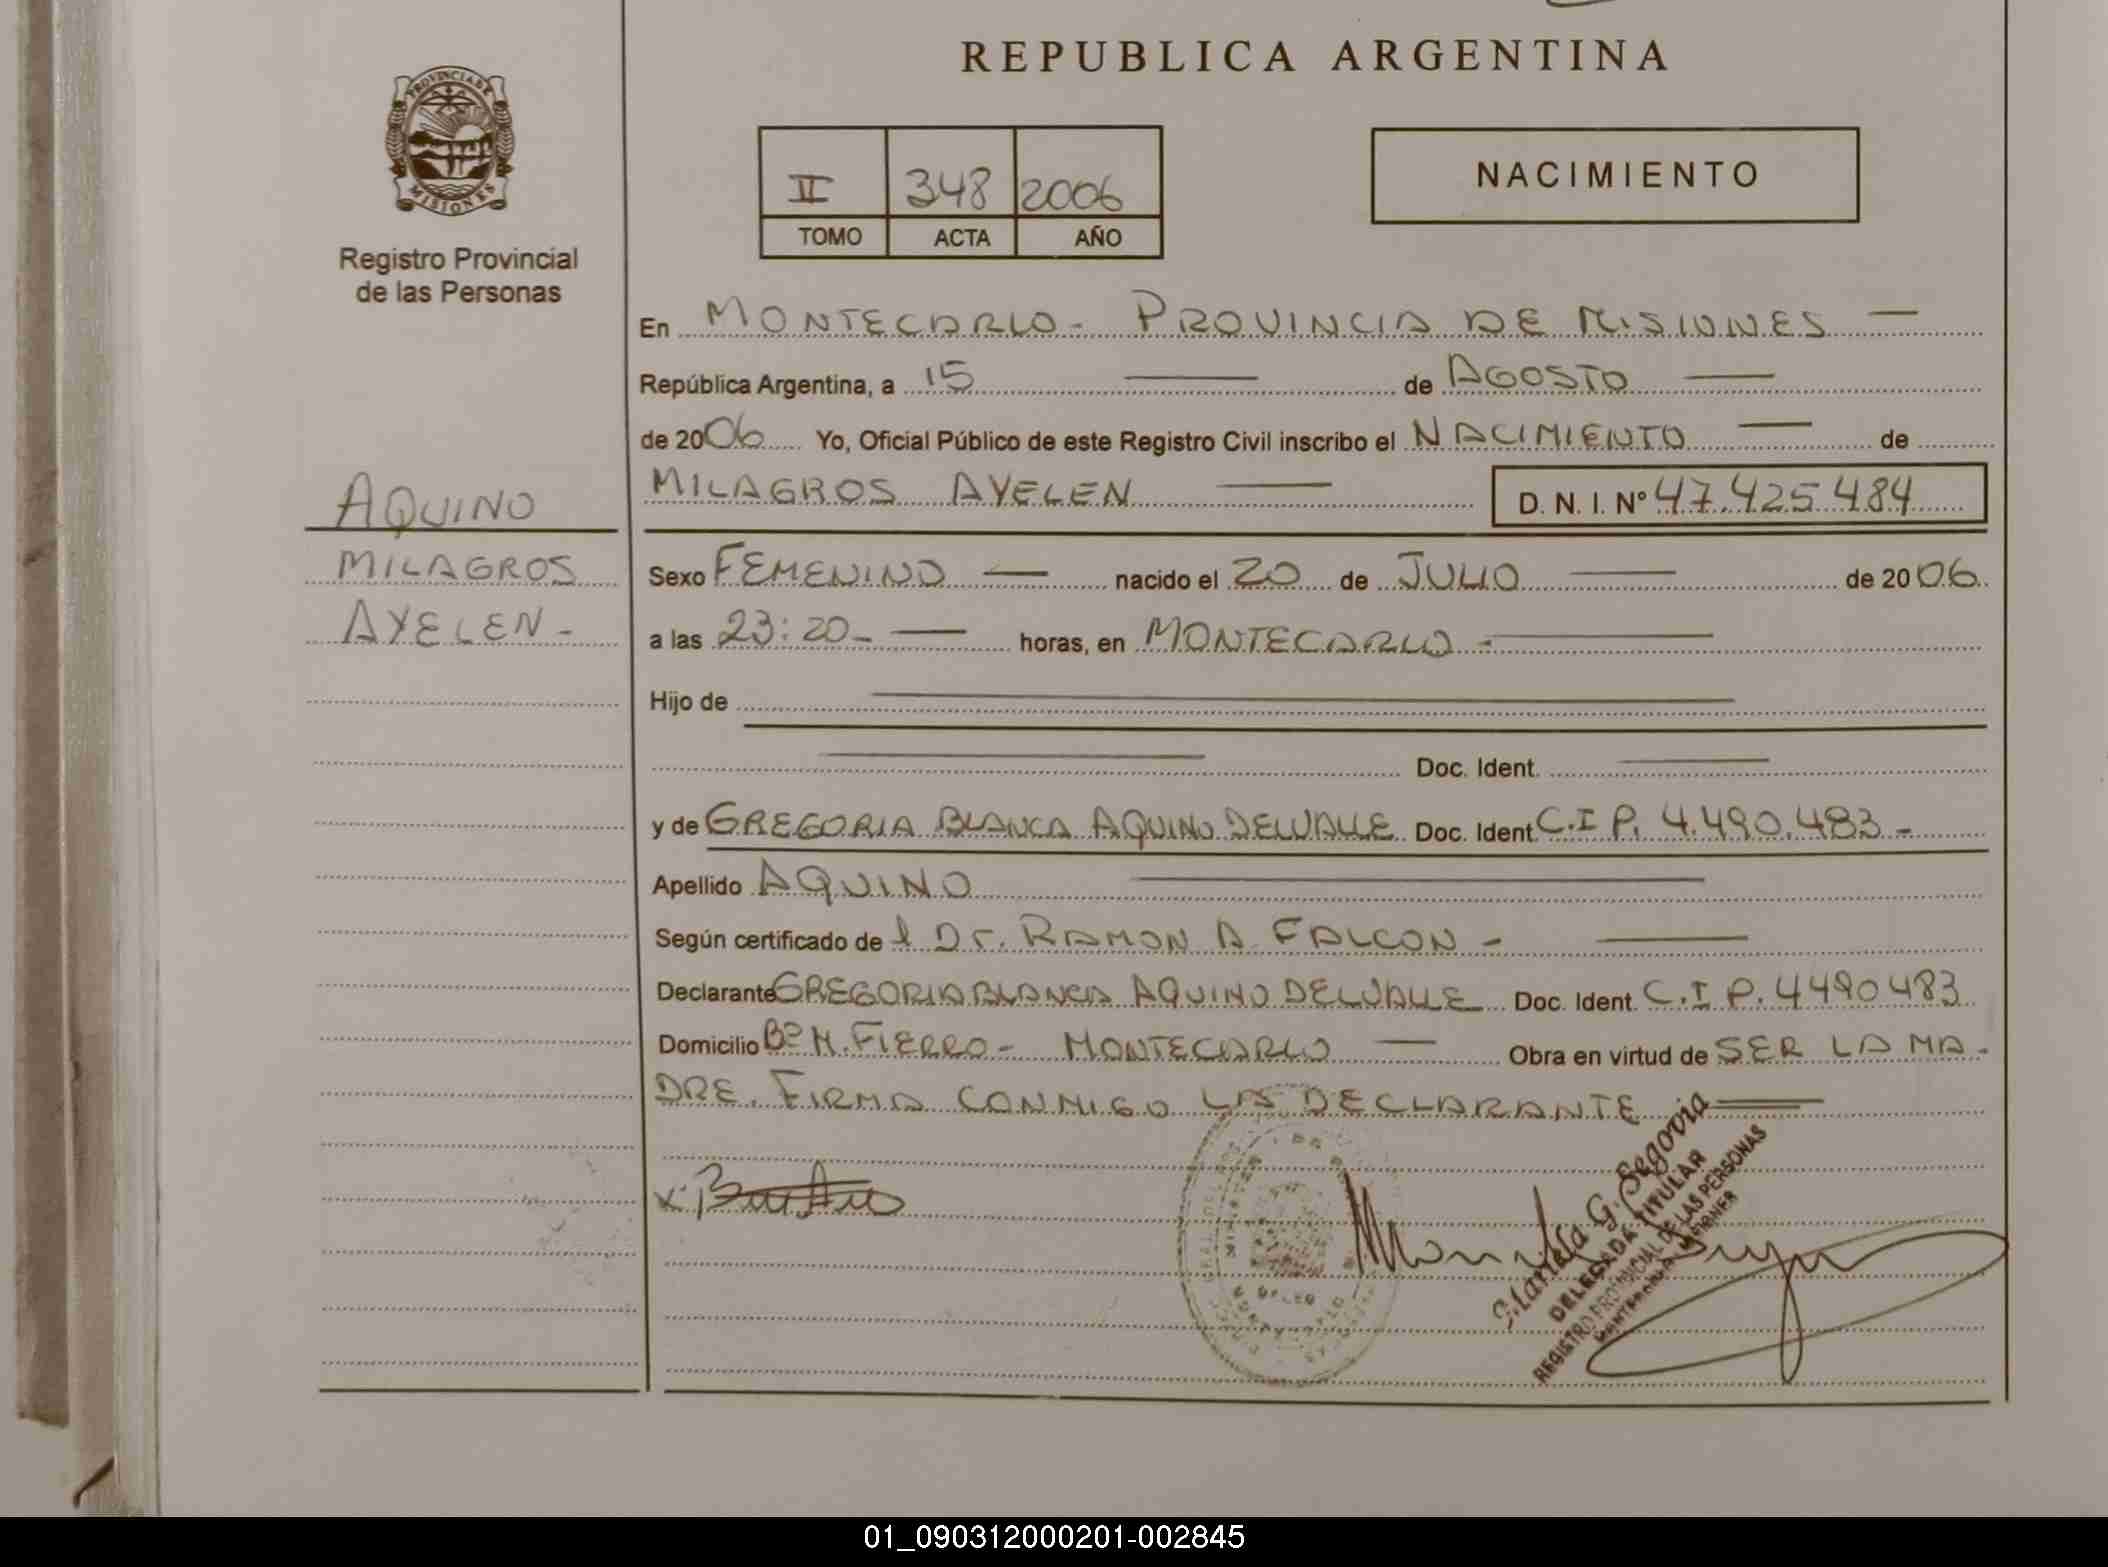 REPUBLICA ARGENTINA
PROVINCIA DE
MISIONES
Registro Provincial
de las Personas
II 348 2006
TOMO ACTA AÑO
NACIMIENTO
En MONTECARLO - PROVINCIA DE MISIONES —
República Argentina, a 15 — de AGOSTO —
de 2006 Yo, Oficial Público de este Registro Civil inscribo el NACIMIENTO — de
MILAGROS AYELEN — D. N. I. Nº 47.425.484
AQUINO
MILAGROS
AYELEN -
Sexo FEMENINO — nacido el 20 de JULIO — de 2006
a las 23:20 - — horas, en MONTECARLO - —
Hijo de —
— Doc. Ident. —
y de GREGORIA BLANCA AQUINO DELVALLE Doc. Ident. C.I P. 4.490.483 -
Apellido AQUINO —
Según certificado de l Dr. RAMON A FALCON - —
Declarante GREGORIA BLANCA AQUINO DELVALLE Doc. Ident. C.I P. 4490483
Domicilio Bº M. FIERRO - MONTECARLO — Obra en virtud de SER LA MA-
DRE. FIRMA CONMIGO LA DECLARANTE —
Mariela G. Segovia
DELEGADA TITULAR
REGISTRO PROVINCIAL DE LAS PERSONAS
01_090312000201-002845